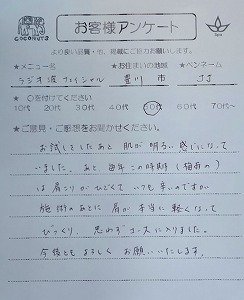 COCONUTS
お客様アンケート
より良い品質・も、掲載にご協力お願いします。
★メニュー名 ★お住まいの地域 ★ペンネーム
ラジオ波フェイシャル 豊川 市 JJ
★ ○を付けてください
10代 20代 30代 40代 50代 60代 70代～
★ご意見・ご感想をお聞かせください。
お試しをしたあと 肌が明るい感じになって
いました。あと 毎年この時期(梅雨の)
は肩こりがひどくて いつも辛いのですが
施術のあとに 肩が本当に軽くなって
びっくり。思わずコースに入りました。
今後ともよろしく お願いいたします。